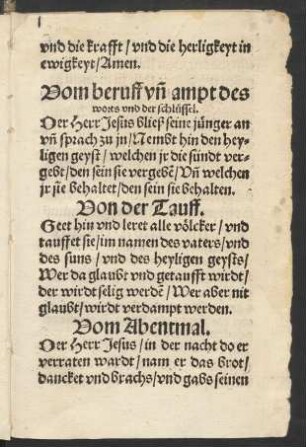 vnd die krafft / vnd die herligkeyt in
ewigkeyt / Amen.
Vom beruff vñ ampt des
worts vnd der schlüssel.
Der Herr Jesus bließ seine jünger an
vñ sprach zu jn / Nembt hin den hey-
ligen geyst / welchen jr die sündt ver-
gebt / den sein sie vergebẽ / Vñ welchen
jr sie behaltet / den sein sie behalten.
Von der Tauff.
Geet hin vnd leret alle völcker / vnd
tauffet sie / im namen des vaters / vnd
des suns / vnd des heyligen geysts /
Wer da glaubt vnd getaufft wirdt /
der wirdt selig werdẽ / Wer aber nit
glaubt / wirdt verdampt werden.
Vom Abentmal.
Der Herr Jesus / in der nacht do er
verraten wardt / nam er das brot /
dancket vnd brachs / vnd gabs seinen